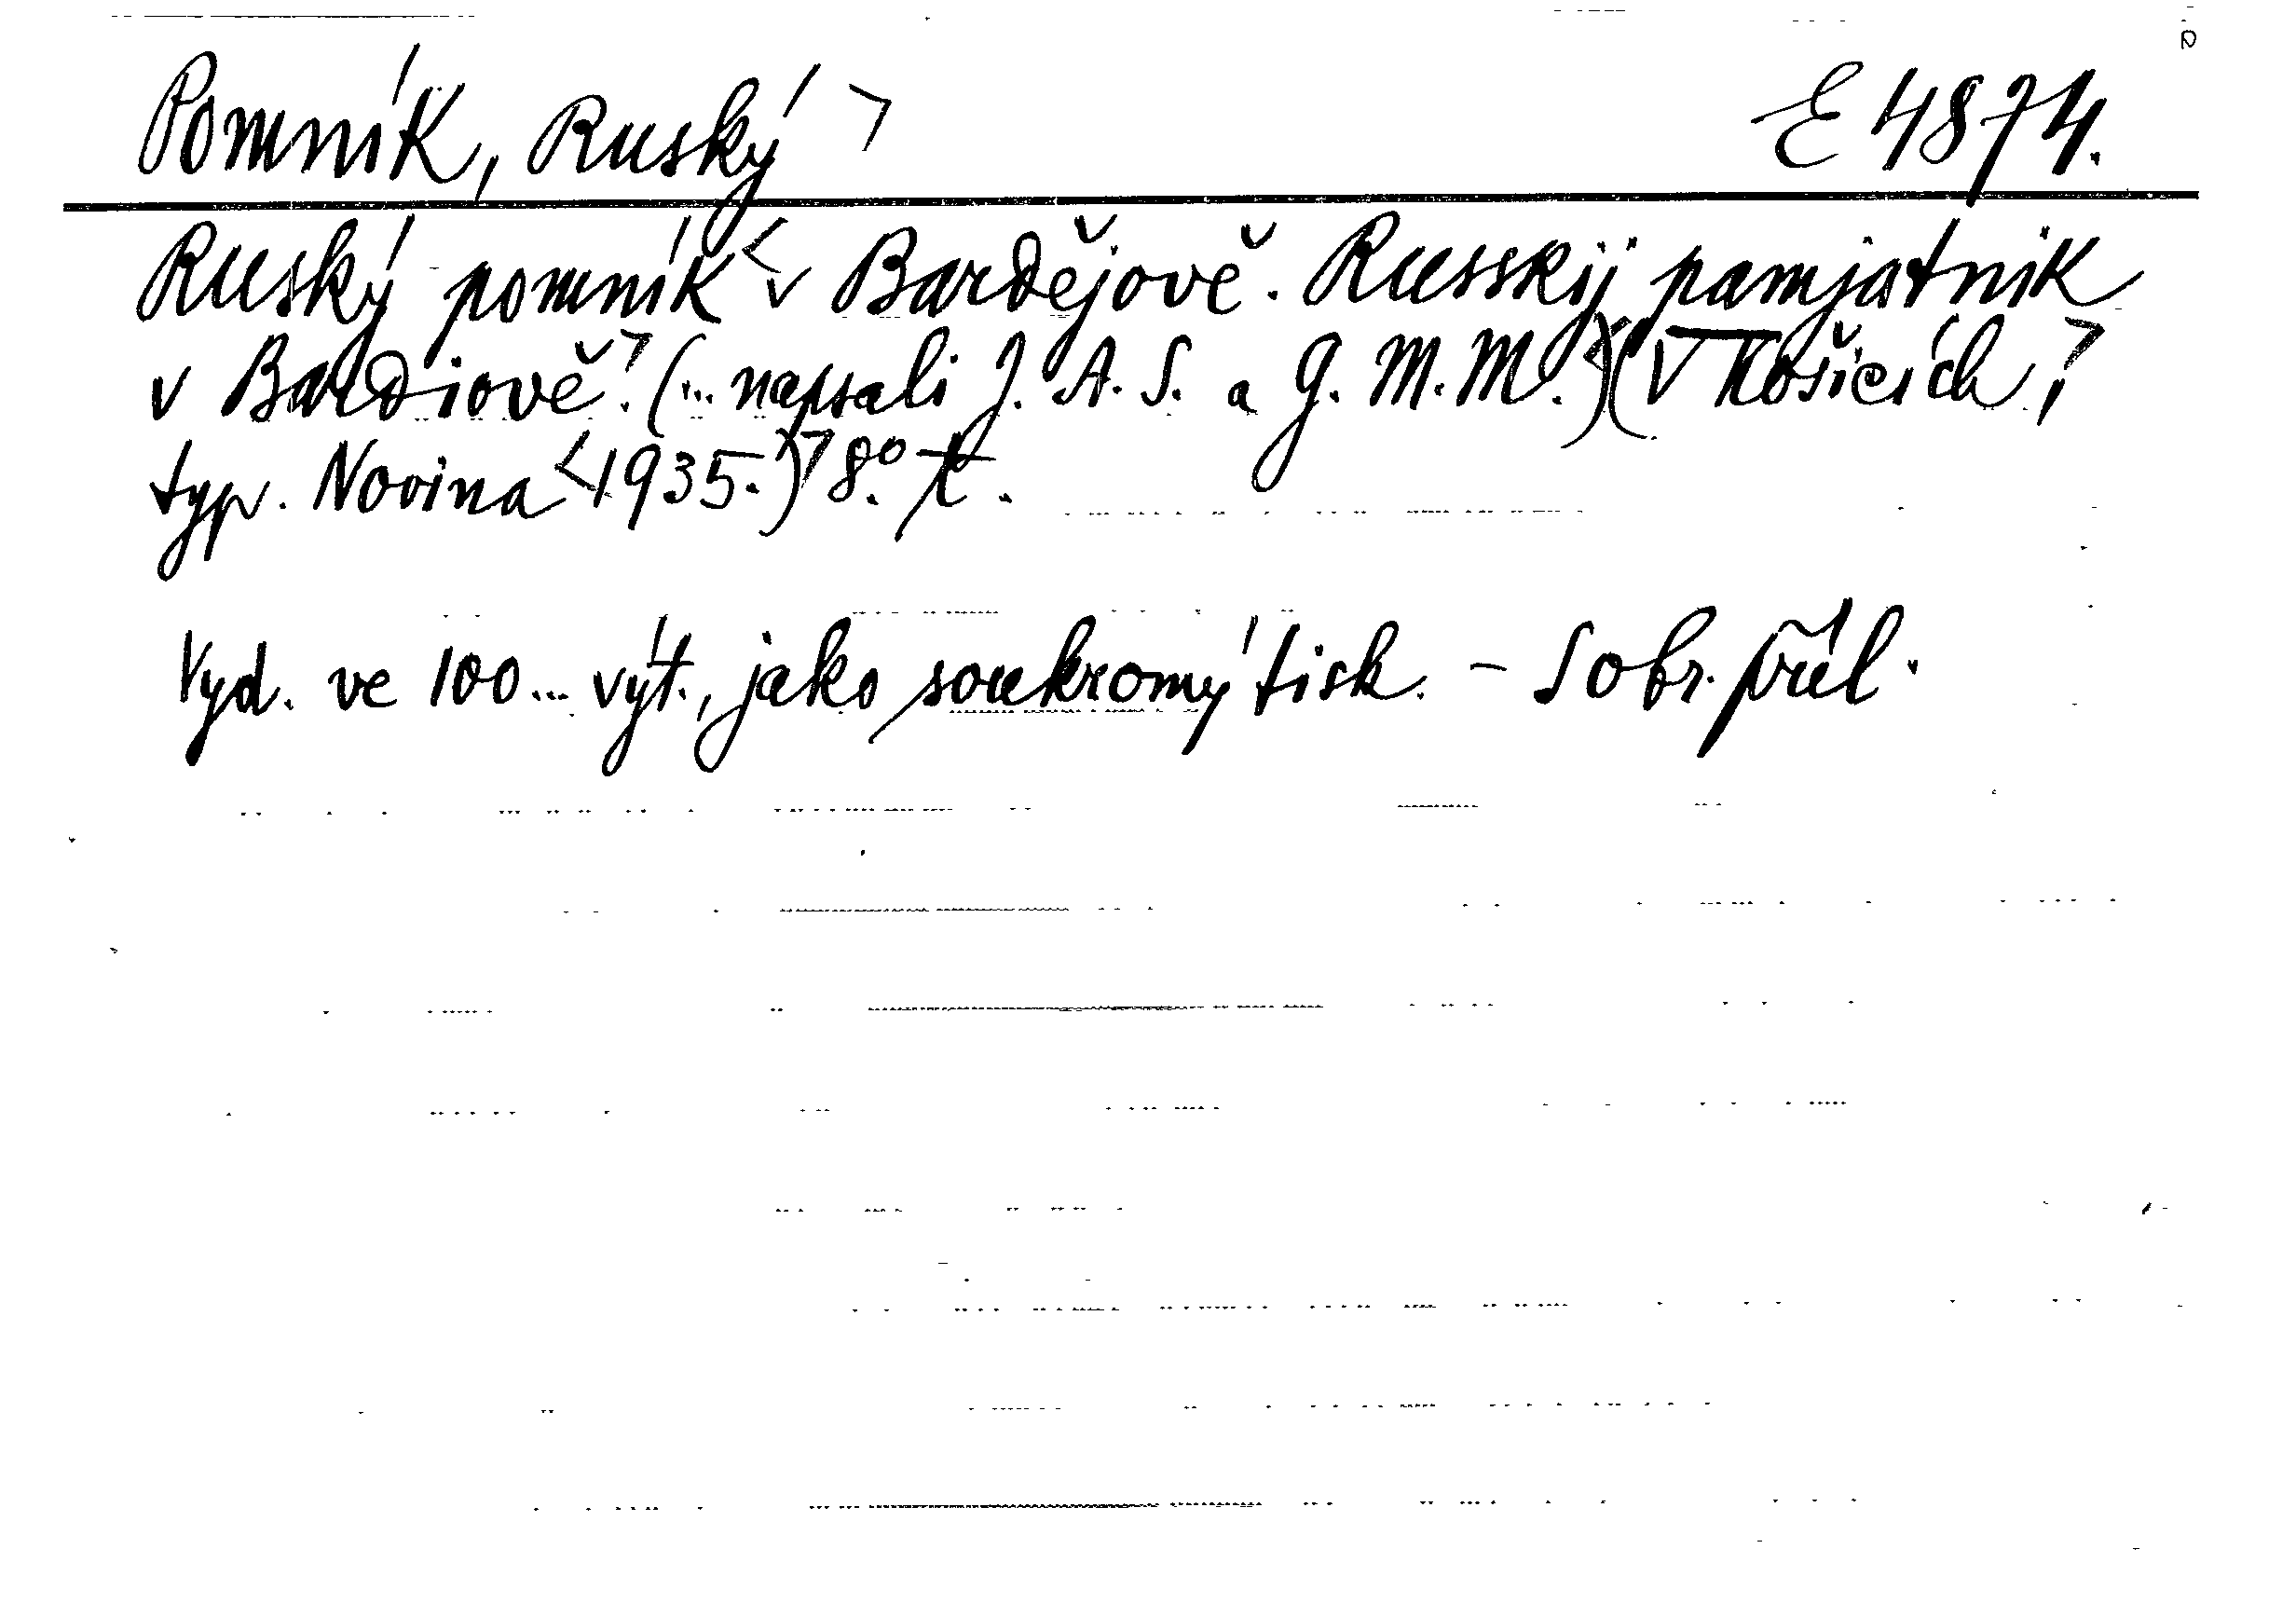 Pomník, Ruský > E 4874.
Ruský pomník < v Bardějově. Russkij pamjatnik
v Bardiově.> (... napsali J. A. S. a G. M. M.) < (V Košicích,>
typ. Novina < 1935.) > 8.° t.
Vyd. ve 100 ... výt., jako soukromý tisk. - S obr. příl.